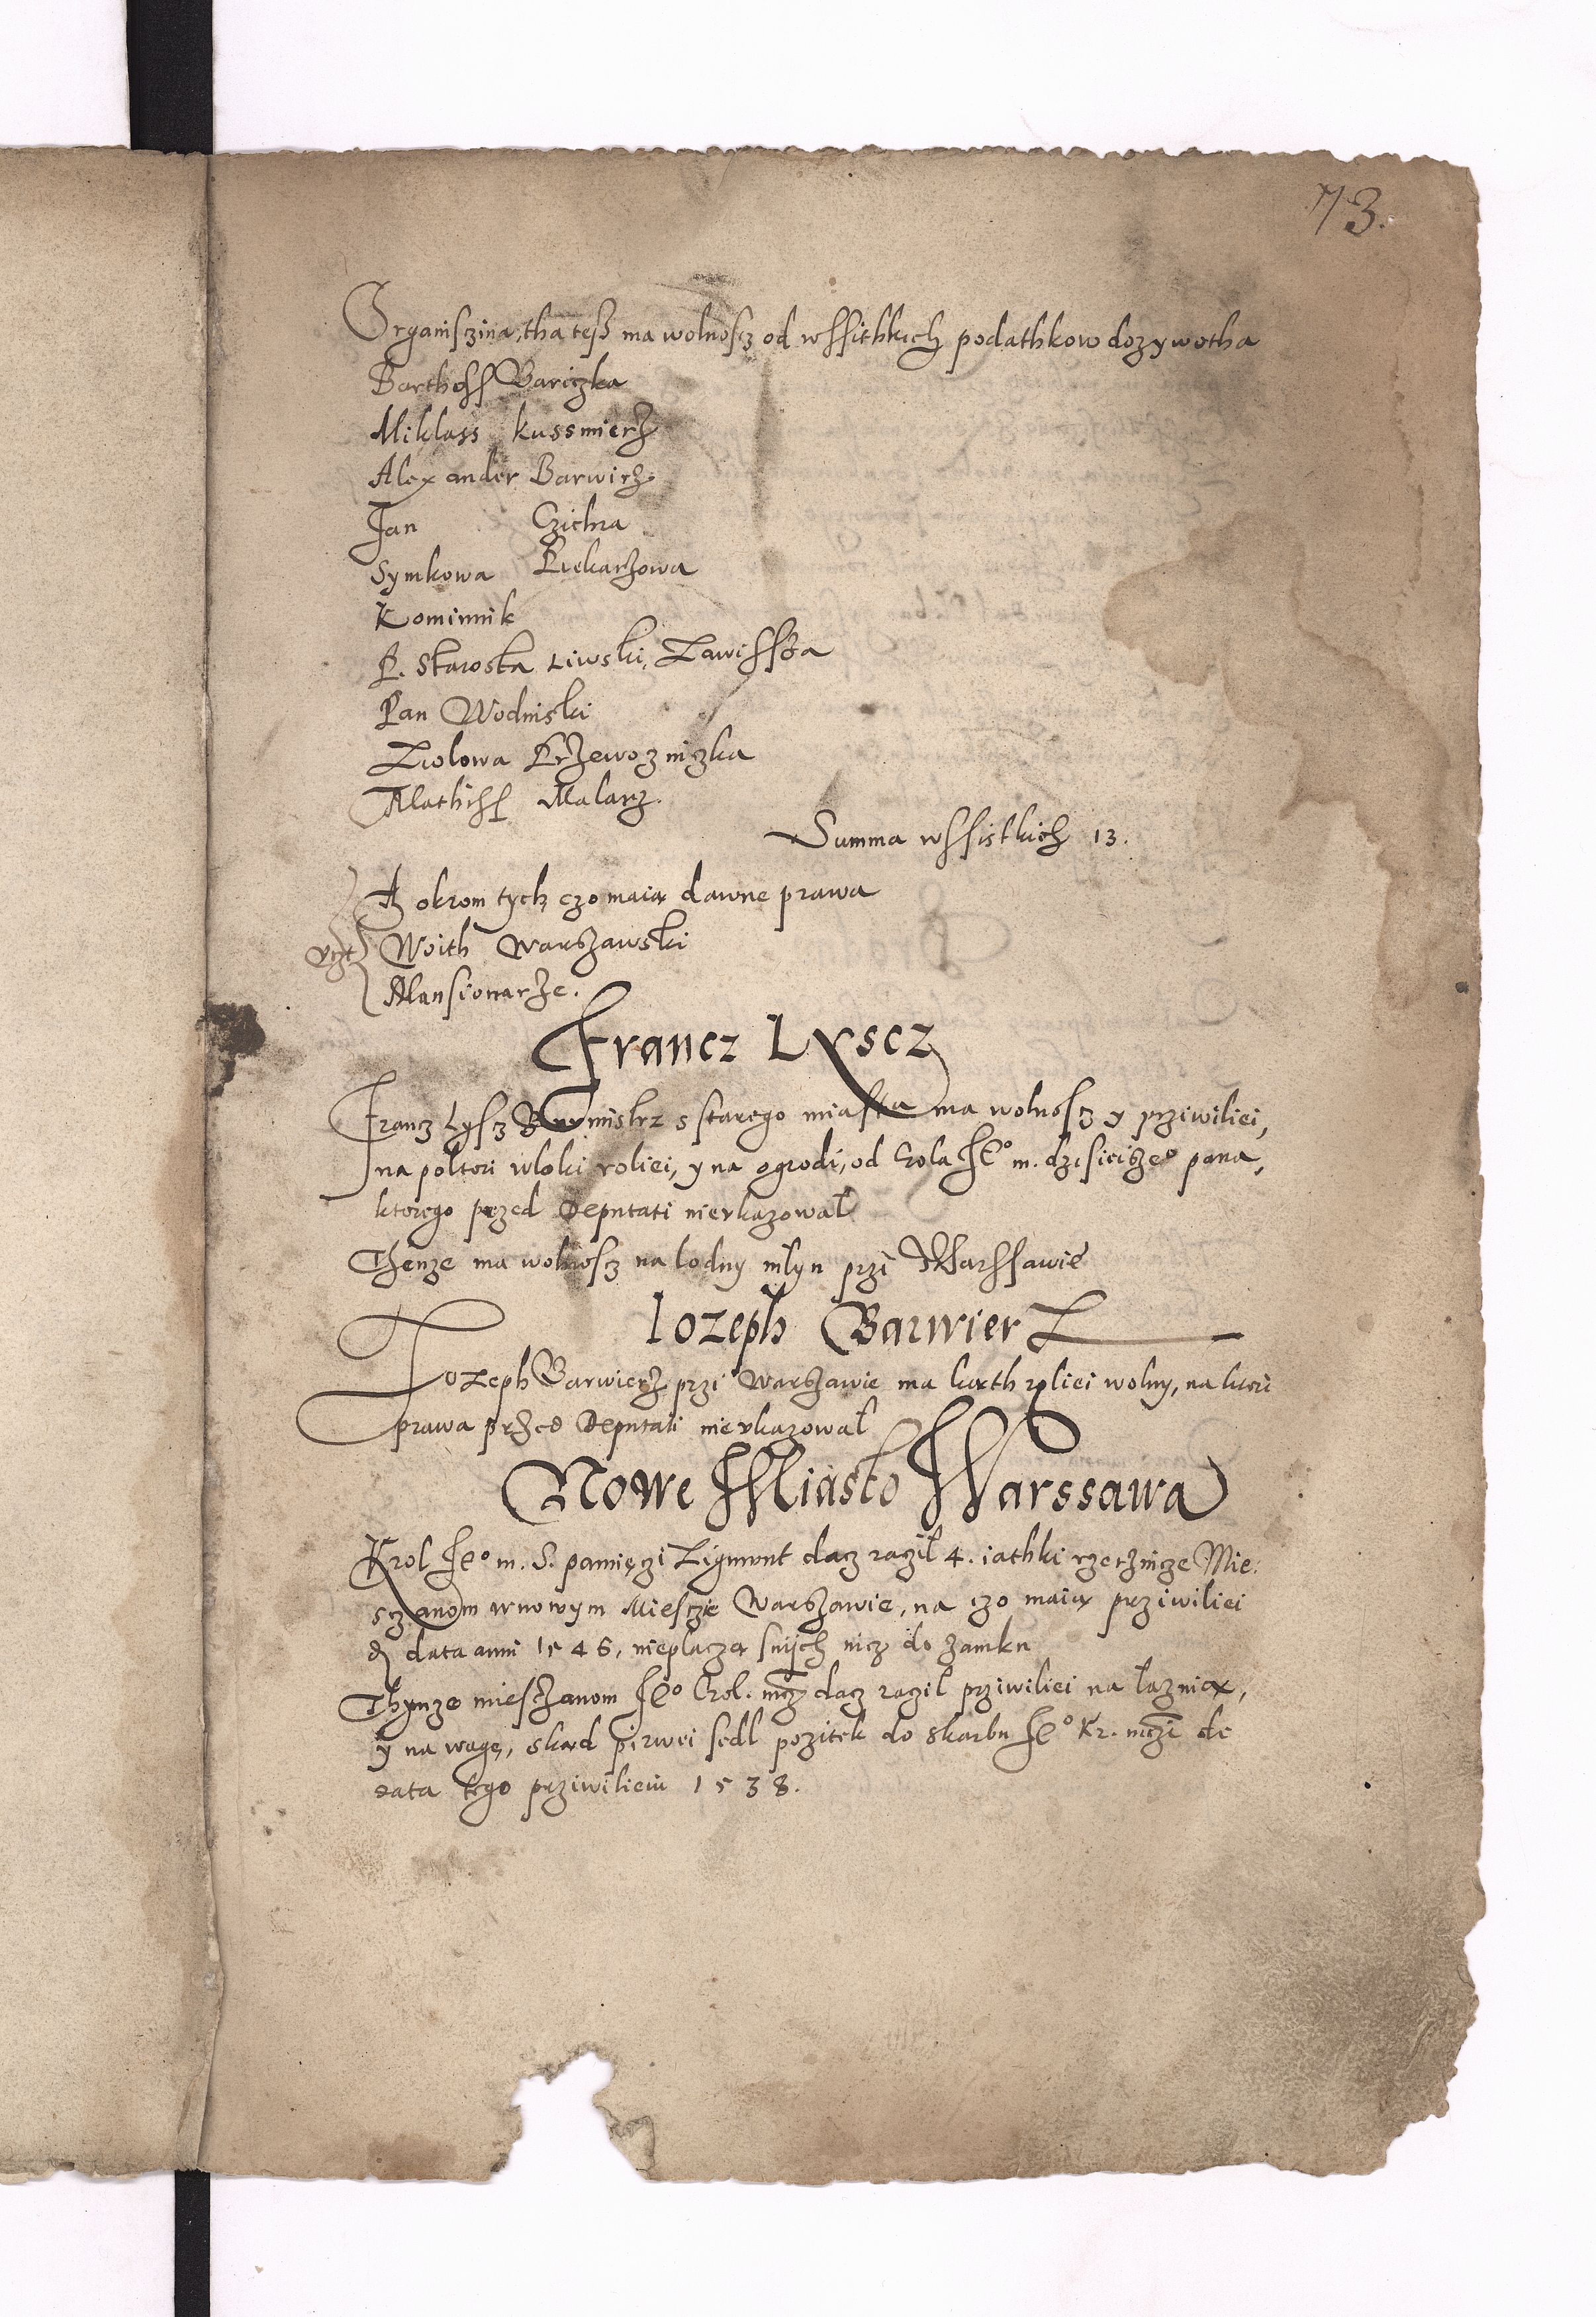 73.
Organisczina, tha tesz ma wolnoscz od wssithkich podathkow dozywotha
Barthoss Bariczka
Miklass kussmierz
Alexander Barwirz
Jan Czichra
Symkowa Piekarzowa
Kominnik
P. Starosta Liwski, Zawissza
Pan Wodniski
Ziolowa Przewozniczka
Mathiss Malarz.
Summa wssistkich 13.
A okrom tych czo maią dawne prawa
Woith Warszawski
Mansionarze.
Francz Lyscz
Francz Lyscz Burmistrz s starego miasta ma wolnoscz y prziwiliei,
na poltori wloki roliei, y na ogrodi, od Crola Je° m. dzisieisze° pana,
ktorego przed Deputati nieukazowal
Thenze ma wolnoscz na lodny mlyn przi Warssawie
Iozeph Barwierz
Jozeph Barwierz przi Warszawie ma kąth roliei wolny, na ktori
prawa przed Deputati nieukazowal
Nowe Miasto Warssawa
Krol Je° m. S. pamięczi Zigmunt dacz raczil 4. iathki rzeznicze Mie:
sczanom w nowym Miesczie Warszawie, na czo maią prziwiliei
data anni 1546, nieplaczą snijch nicz do zamku
Thymze miesczanom Je° Crol. mcz dacz raczil prziwiliei na laznią,
y na wagę, skąd pirwei sedl pozitek do skarbu Je° Kr. mczi de
data tego prziwilieiu 1538.